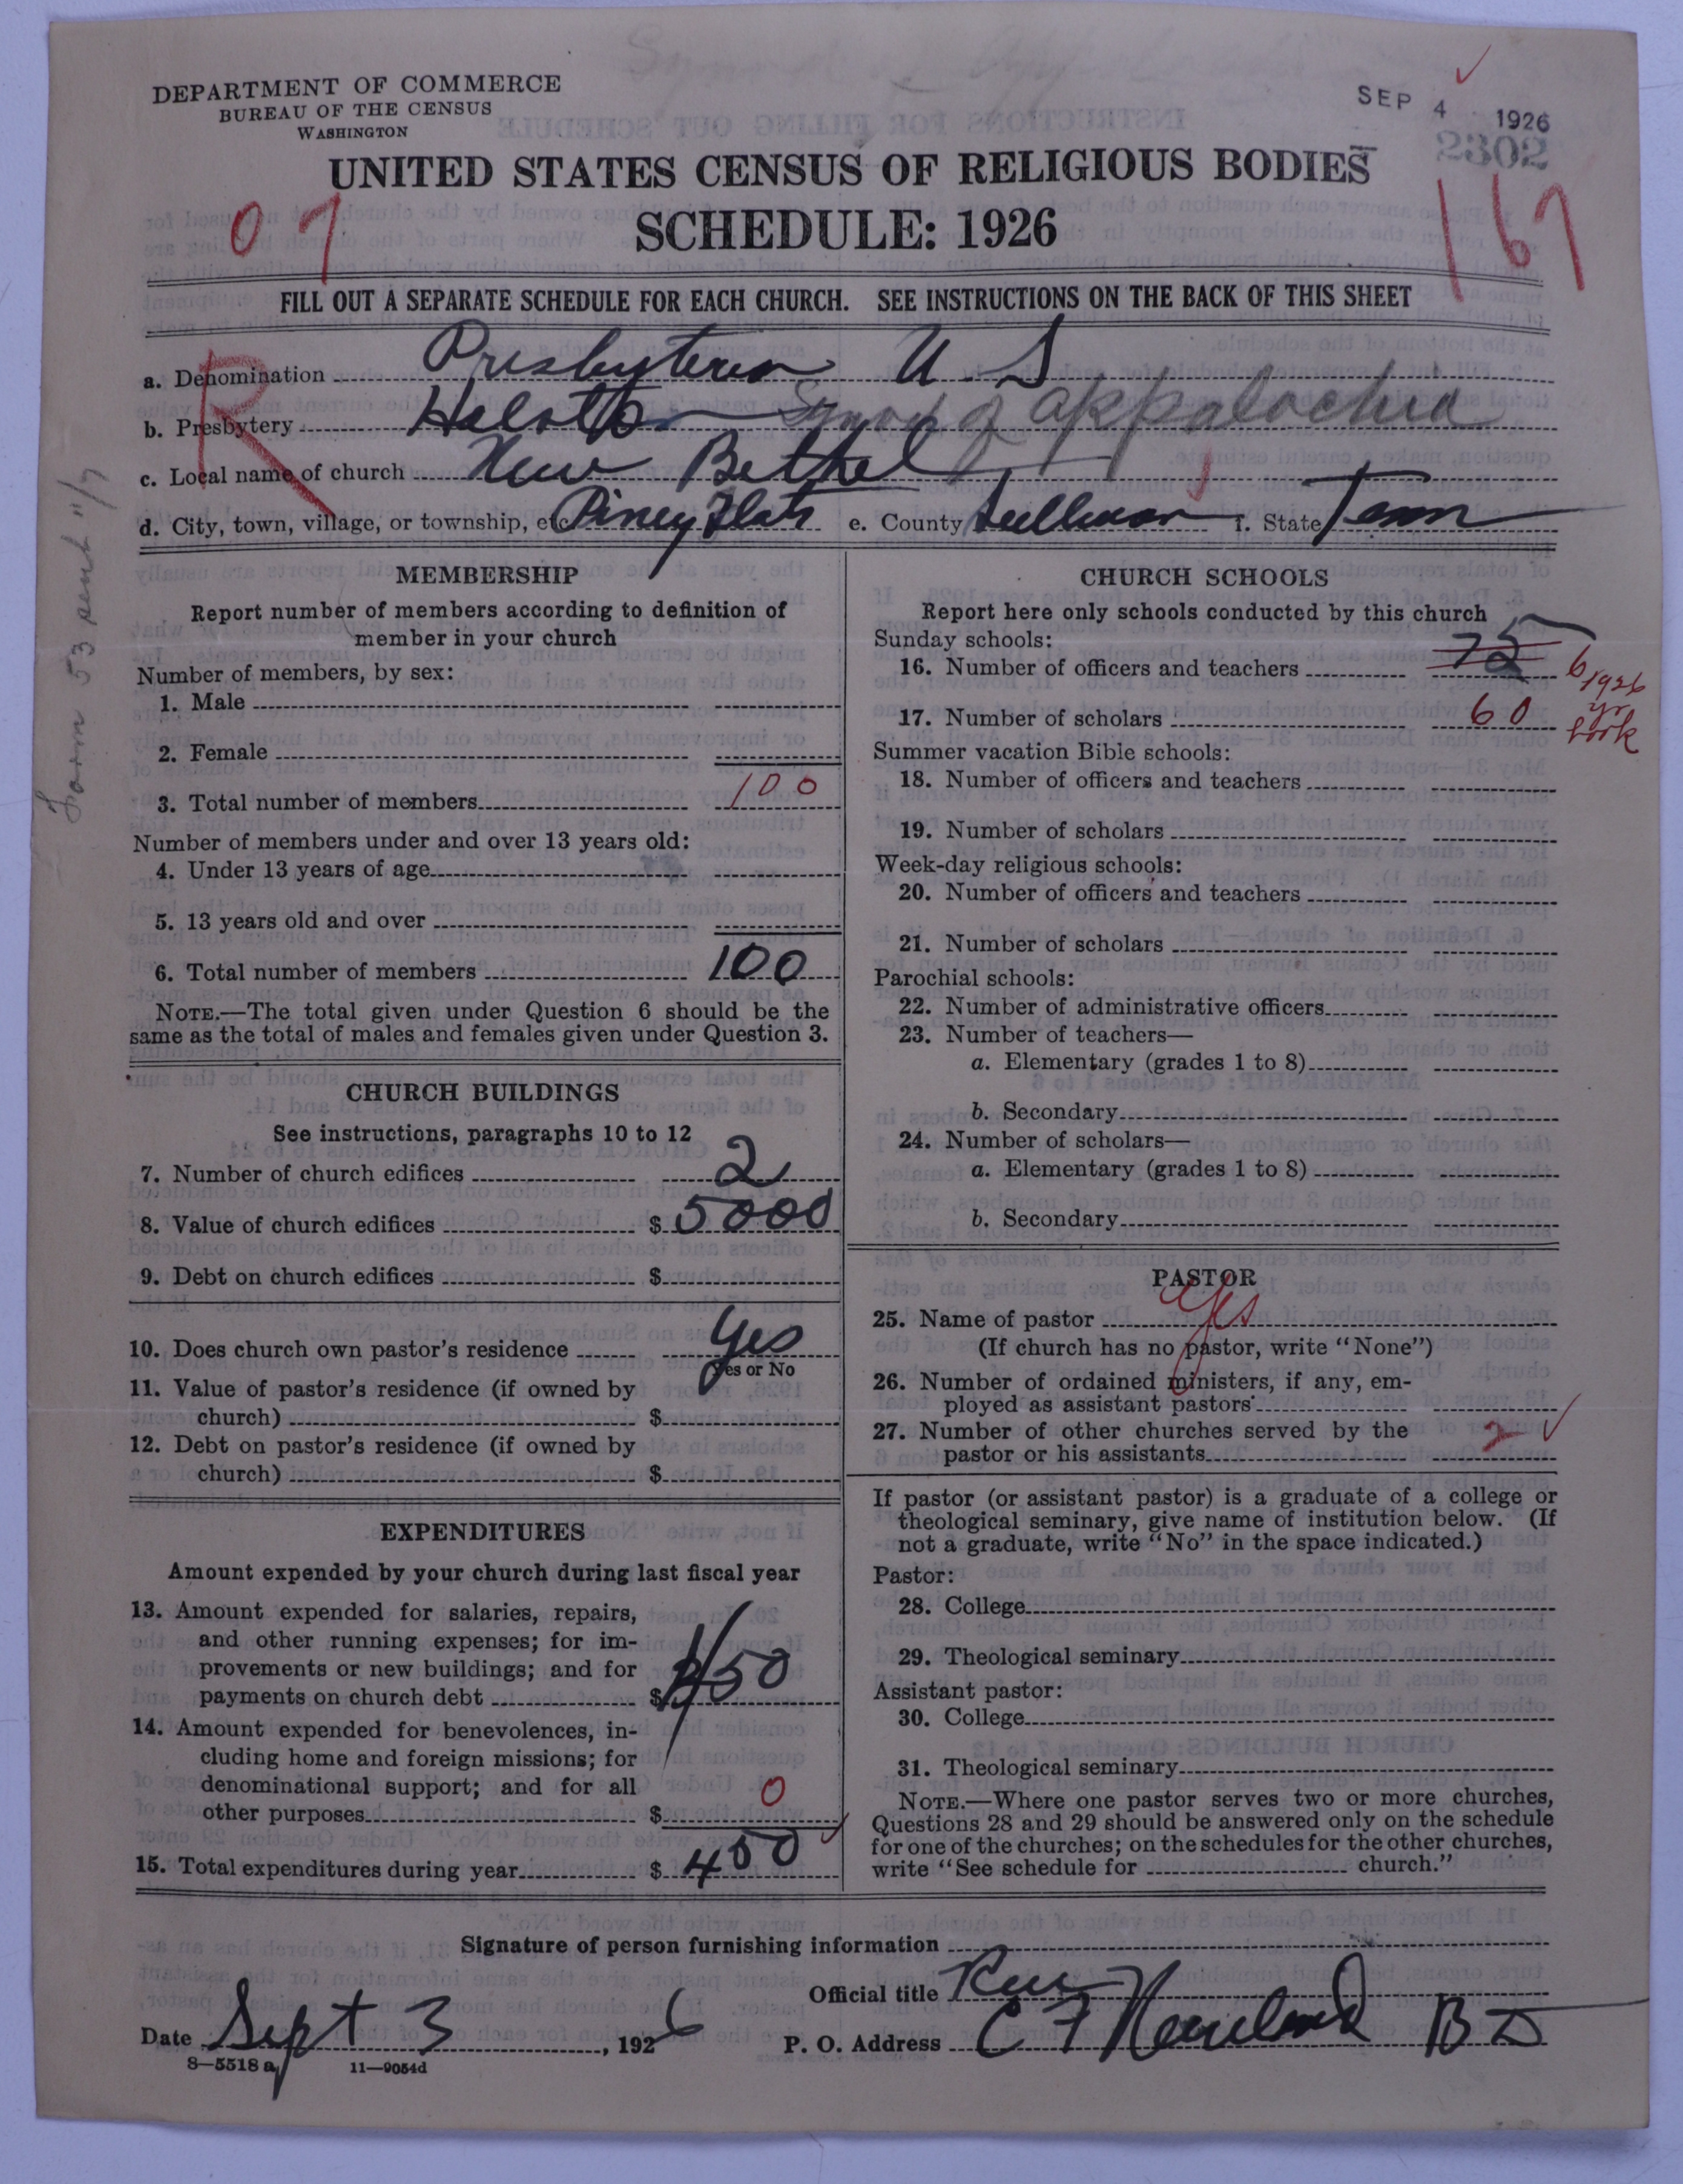 DEPARTMENT OF COMMERCE
BUREAU OF THE CENSUS
WASHINGTON
SEP 4 1926
2302
UNITED STATES CENSUS OF RELIGIOUS BODIES
SCHEDULE: 1926
07
167
FILL OUT A SEPARATE SCHEDULE FOR EACH CHURCH. SEE INSTRUCTIONS ON THE BACK OF THIS SHEET
R
a. Denomination Presbyterian U. S
b. Presbytery Holston Synod of Appalachia
c. Local name of church New Bethel
d. City, town, village, or township, etc. Piney Flats e. County Sullivan f. State Tenn
Form 53 sent 11/7
MEMBERSHIP
Report number of members according to definition of
member in your church
Number of members, by sex:
1. Male
2. Female
3. Total number of members 100
Number of members under and over 13 years old:
4. Under 13 years of age
5. 13 years old and over
6. Total number of members 100
NOTE.—The total given under Question 6 should be the
same as the total of males and females given under Question 3.
CHURCH BUILDINGS
See instructions, paragraphs 10 to 12
7. Number of church edifices 2
8. Value of church edifices $ 5000
9. Debt on church edifices $
10. Does church own pastor's residence Yes
Yes or No
11. Value of pastor's residence (if owned by
church) $
12. Debt on pastor's residence (if owned by
church) $
EXPENDITURES
Amount expended by your church during last fiscal year
13. Amount expended for salaries, repairs,
and other running expenses; for im-
provements or new buildings; and for
payments on church debt $ 450
14. Amount expended for benevolences, in-
cluding home and foreign missions; for
denominational support; and for all
other purposes $ 0
15. Total expenditures during year $ 450
CHURCH SCHOOLS
Report here only schools conducted by this church
Sunday schools:
16. Number of officers and teachers 75 6
1926
yr
book
17. Number of scholars 60
Summer vacation Bible schools:
18. Number of officers and teachers
19. Number of scholars
Week-day religious schools:
20. Number of officers and teachers
21. Number of scholars
Parochial schools:
22. Number of administrative officers
23. Number of teachers—
a. Elementary (grades 1 to 8)
b. Secondary
24. Number of scholars—
a. Elementary (grades 1 to 8)
b. Secondary
PASTOR
25. Name of pastor Yes
(If church has no pastor, write "None")
26. Number of ordained ministers, if any, em-
ployed as assistant pastors
27. Number of other churches served by the
pastor or his assistants 2
If pastor (or assistant pastor) is a graduate of a college or
theological seminary, give name of institution below. (If
not a graduate, write "No" in the space indicated.)
Pastor:
28. College
29. Theological seminary
Assistant pastor:
30. College
31. Theological seminary
NOTE.—Where one pastor serves two or more churches,
Questions 28 and 29 should be answered only on the schedule
for one of the churches; on the schedules for the other churches,
write "See schedule for church."
Signature of person furnishing information
Official title Rev
Date Sept 3, 1926 P. O. Address C F
8—5518 a 11—9054d